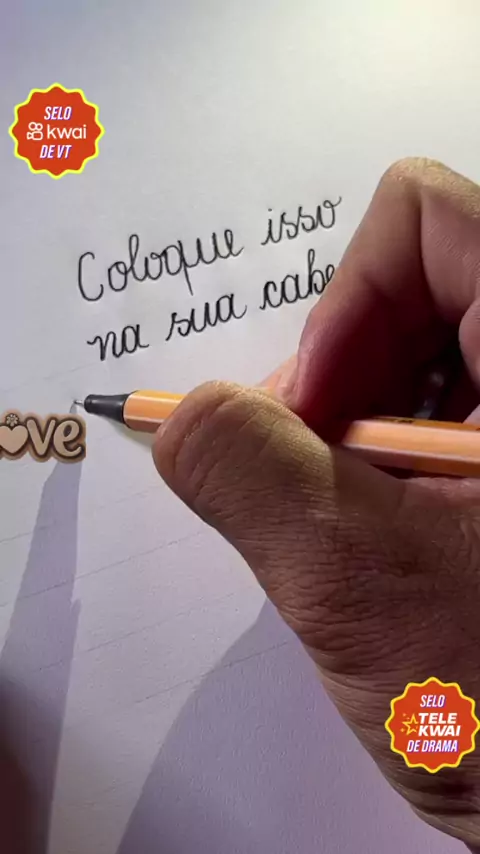 SELO
kwai
DE VT
Coloque isso
na sua cabe
ove
SELO
TELE
KWAI
DE DRAMA